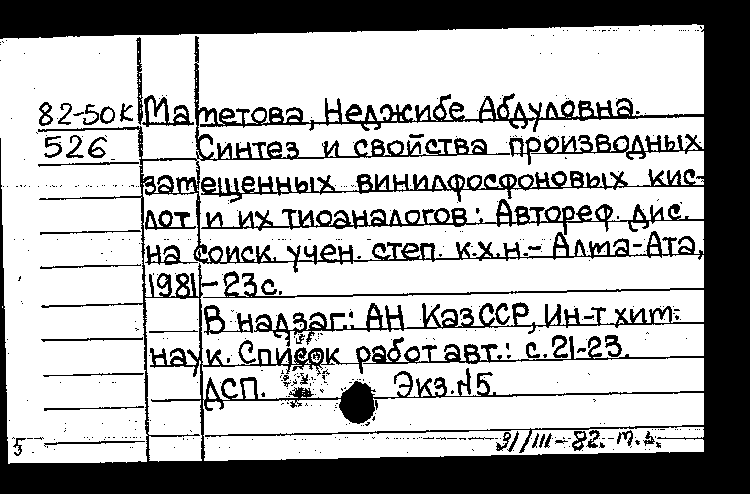 82-50К Маметова, Неджибе Абдуловна.
526 Синтез и свойства производных
замещенных винилфосфоновых кис-
лот и их тиоаналогов: Автореф. дис.
на соиск. учен. степ. к.х.н.- Алма-Ата,
1981-23с.
В надзаг.: АН КазССР, Ин-т хим.
наук. Список работ авт.: с.21-23.
ДСП. Экз.№5.
5 31/III-82.